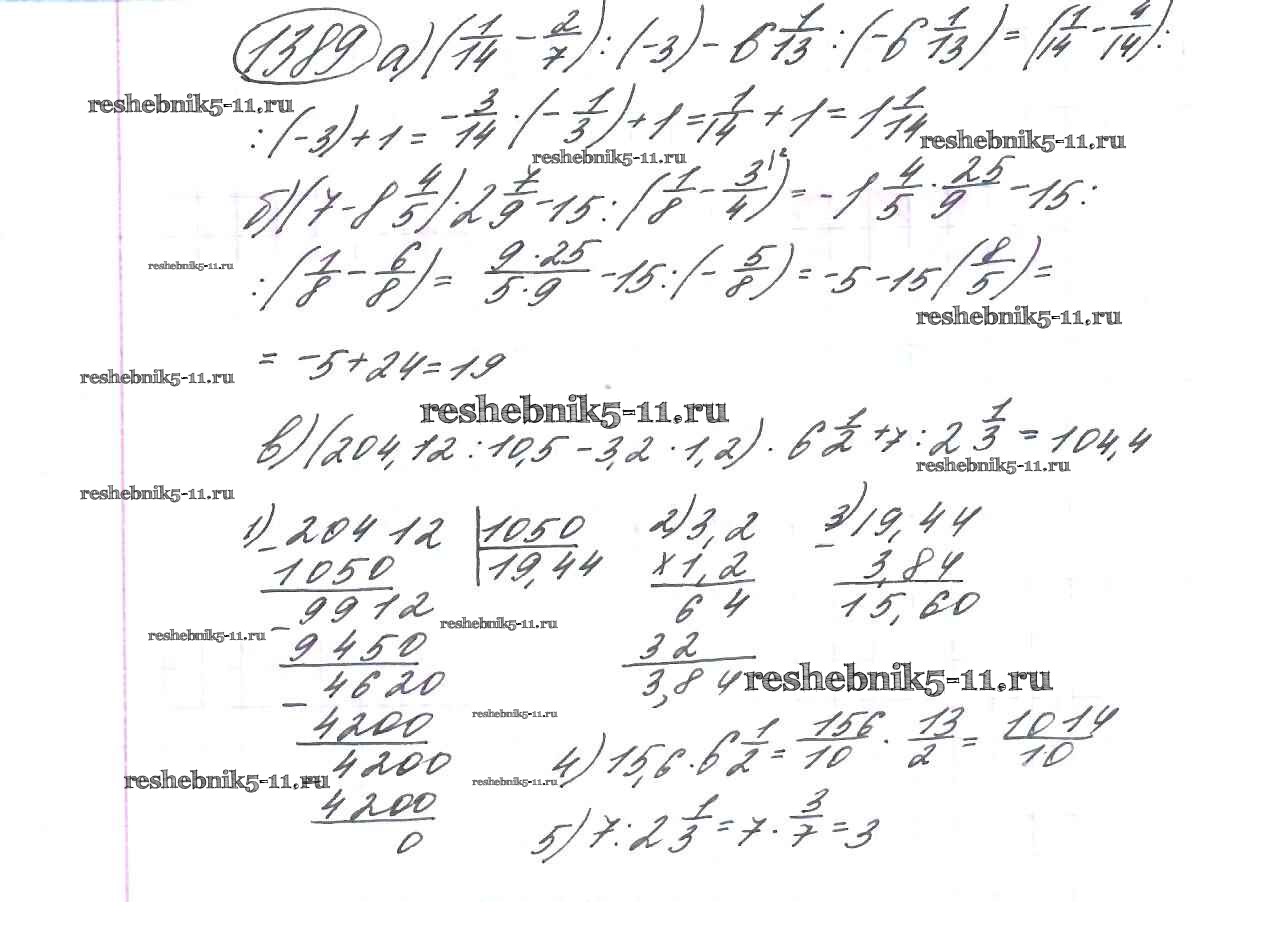 1389 а) (1/14 - 2/7) : (-3) - 6 1/13 : (-6 1/13) = (1/14 - 4/14) :
reshebnik5-11.ru
: (-3) + 1 = -3/14 · (-1/3) + 1 = 1/14 + 1 = 1 1/14
reshebnik5-11.ru
reshebnik5-11.ru
б) (7 - 8 4/5) · 2 7/9 - 15 : (1/8 - 3/4 \2) = -1 4/5 · 25/9 - 15 :
reshebnik5-11.ru
: (1/8 - 6/8) = 9·25/5·9 - 15 : (-5/8) = -5 - 15 (8/5) =
reshebnik5-11.ru
= -5 + 24 = 19
reshebnik5-11.ru
reshebnik5-11.ru
в) (204,12 : 10,5 - 3,2 · 1,2) · 6 1/2 + 7 : 2 1/3 = 104,4
reshebnik5-11.ru
reshebnik5-11.ru
1) - 20412 | 1050
1050 | 19,44
- 9912
9450
- 4620
4200
- 4200
4200
0
2) 3,2
x 1,2
64
32
3,84
3) - 19,44
3,84
15,60
reshebnik5-11.ru
reshebnik5-11.ru
reshebnik5-11.ru
reshebnik5-11.ru
4) 15,6 · 6 1/2 = 156/10 · 13/2 = 1014/10
reshebnik5-11.ru
reshebnik5-11.ru
5) 7 : 2 1/3 = 7 · 3/7 = 3